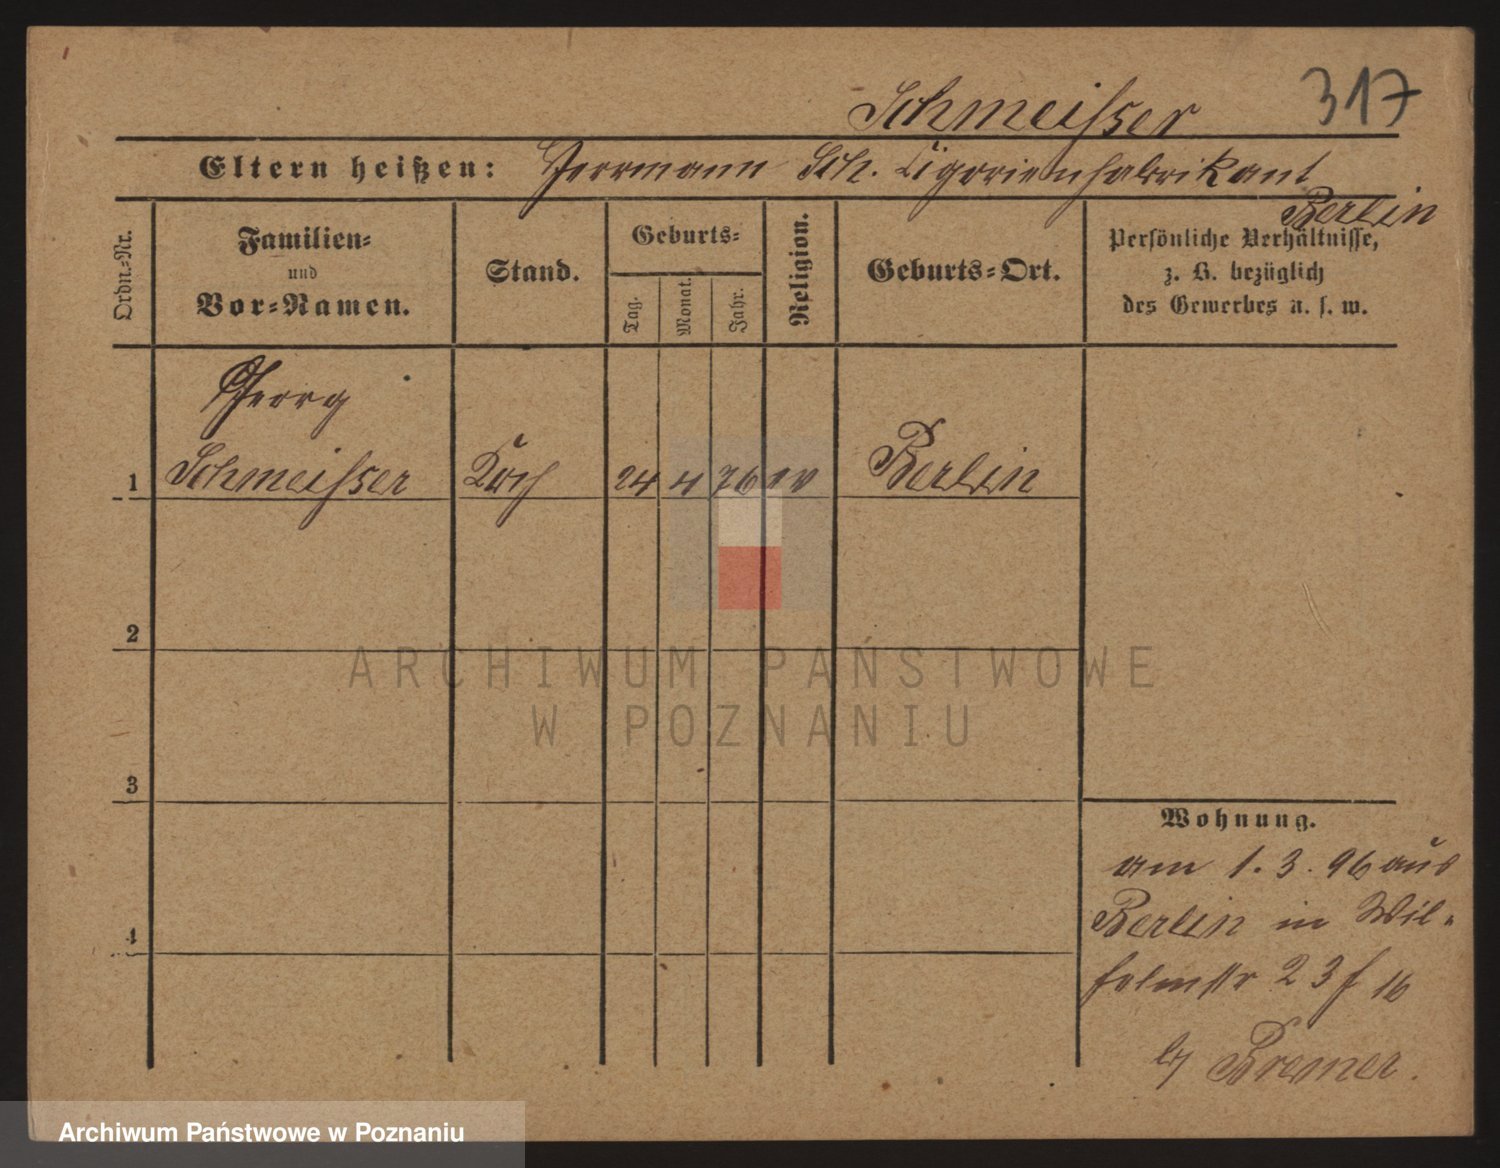 317
Schmeisser
Eltern heißen: Herrmann Sch. Cigarrenfabrikant
Berlin
Ordn.-Nr.
Familien-
und
Vor-Namen.
Stand.
Geburts-
Tag.
Monat.
Jahr.
Religion.
Geburts-Ort.
Persönliche Verhältnisse,
z. B. bezüglich
des Gewerbes u. s. w.
Georg
1 Schmeisser Koch 24 4 76 ev Berlin
2
3
4
Wohnung.
am 1. 3. 96 aus
Berlin in Wil-
helmstr 23 f 16
by Bremer.
ARCHIWUM PAŃSTWOWE
W POZNANIU
Archiwum Państwowe w Poznaniu